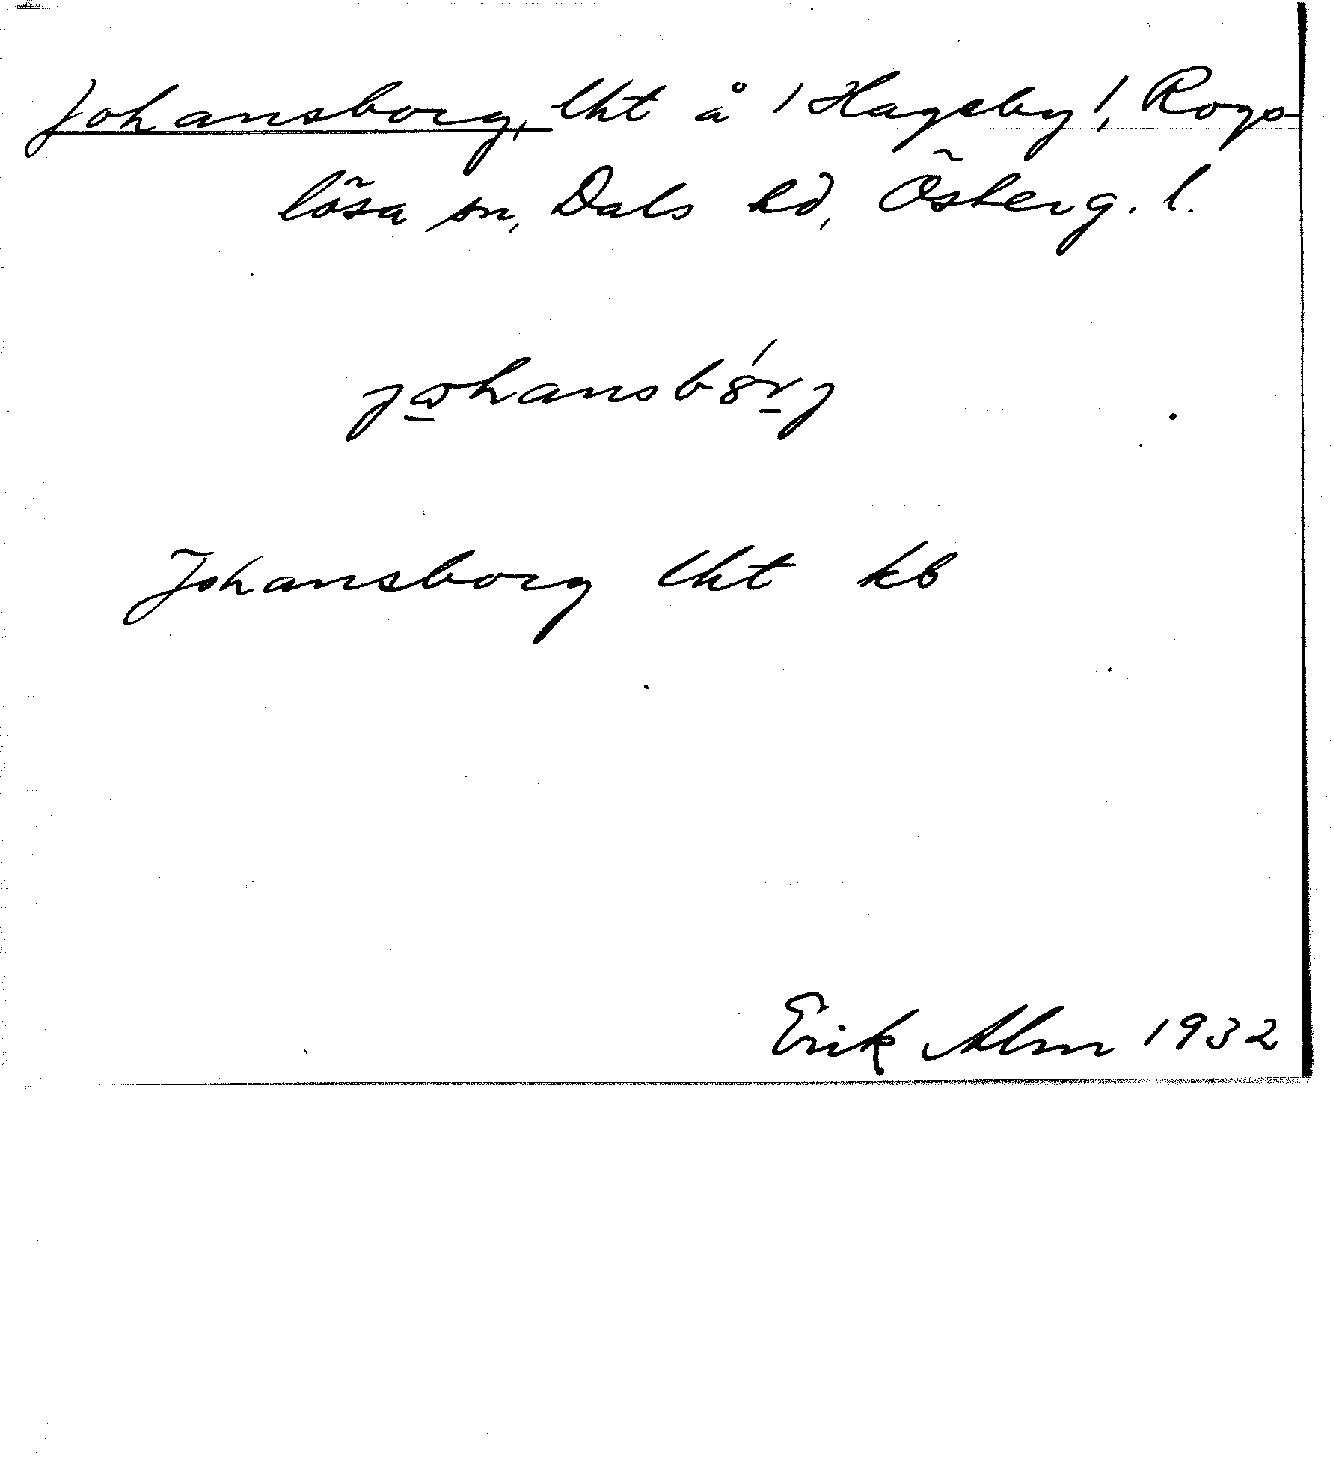 Johansborg, lht å /Hageby/, Rogs-
lösa sn, Dals hd, Österg. l.
Johansborg lht kb
Erik Alm 1932